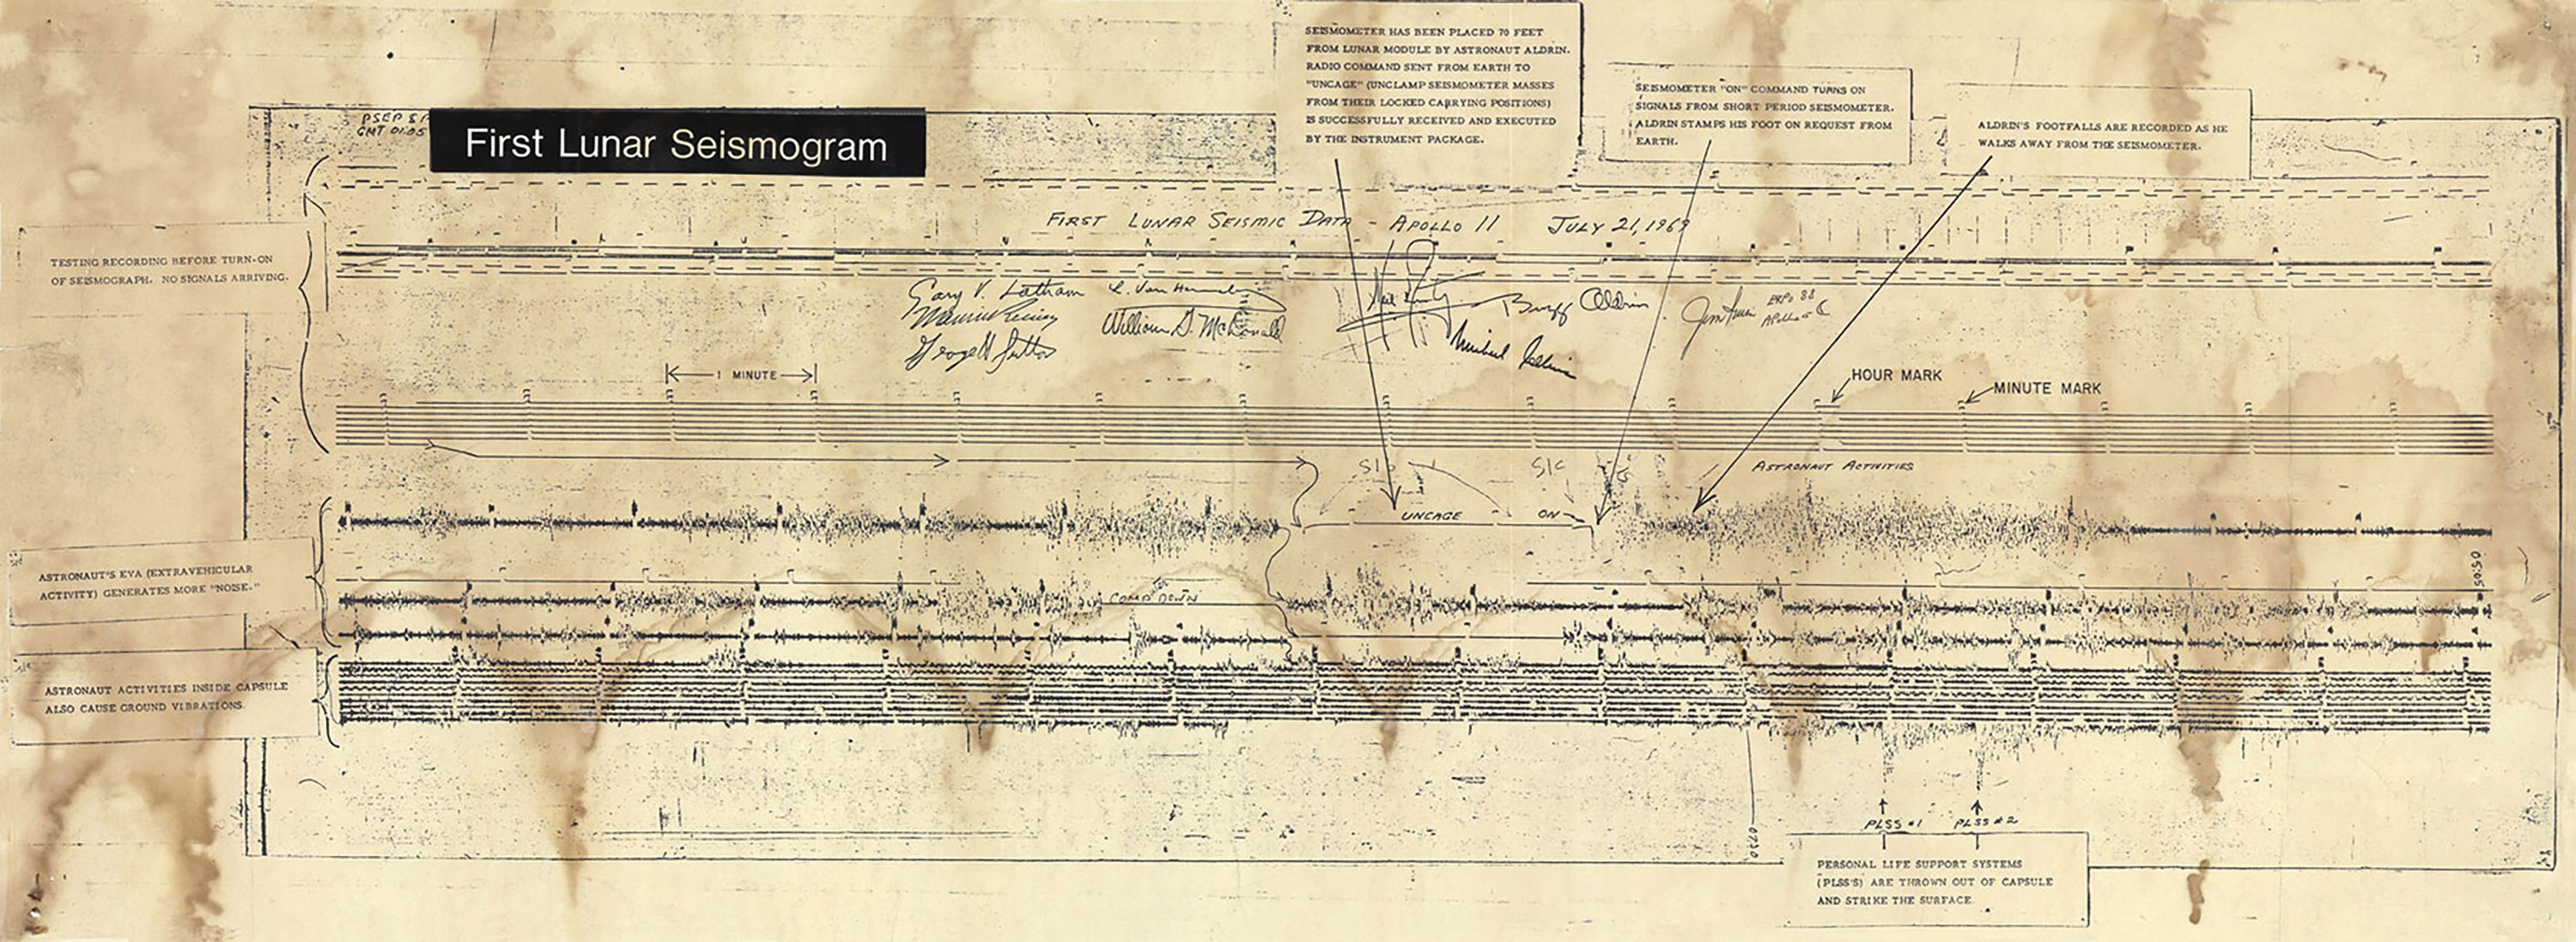 SEISMOMETER HAS BEEN PLACED 70 FEET
FROM LUNAR MODULE BY ASTRONAUT ALDRIN.
RADIO COMMAND SENT FROM EARTH TO
"UNCAGE" (UNCLAMP SEISMOMETER MASSES
FROM THEIR LOCKED CARRYING POSITIONS)
IS SUCCESSFULLY RECEIVED AND EXECUTED
BY THE INSTRUMENT PACKAGE.
SEISMOMETER "ON" COMMAND TURNS ON
SIGNALS FROM SHORT PERIOD SEISMOMETER.
ALDRIN STAMPS HIS FOOT ON REQUEST FROM
EARTH.
ALDRIN'S FOOTFALLS ARE RECORDED AS HE
WALKS AWAY FROM THE SEISMOMETER.
PSEP SP
GMT 01:05
First Lunar Seismogram
FIRST LUNAR SEISMIC DATA - APOLLO 11 JULY 21, 1969
TESTING RECORDING BEFORE TURN-ON
OF SEISMOGRAPH. NO SIGNALS ARRIVING.
Gary V. Latham
William G. McDonald
George H Sutton
Buzz Aldrin
Michael Collins
1 MINUTE
HOUR MARK
MINUTE MARK
ASTRONAUT ACTIVITIES
UNCAGE
ON
ASTRONAUT'S EVA (EXTRAVEHICULAR
ACTIVITY) GENERATES MORE "NOISE."
COMP DOWN
ASTRONAUT ACTIVITIES INSIDE CAPSULE
ALSO CAUSE GROUND VIBRATIONS
PLSS #1 PLSS #2
PERSONAL LIFE SUPPORT SYSTEMS
(PLSS'S) ARE THROWN OUT OF CAPSULE
AND STRIKE THE SURFACE